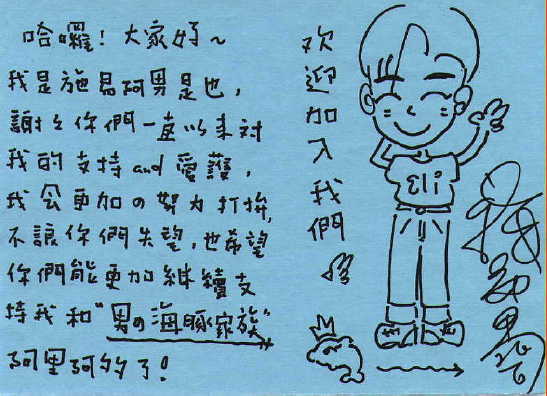 哈囉！大家好～
我是施易阿男是也，
謝々你們一直以來對
我的支持and愛護，
我会更加の努力打拚，
不讓你們失望，也希望
你們能更加継續支
持我和"男の海豚家族"
阿里阿多了！
欢迎加入我們
Eli